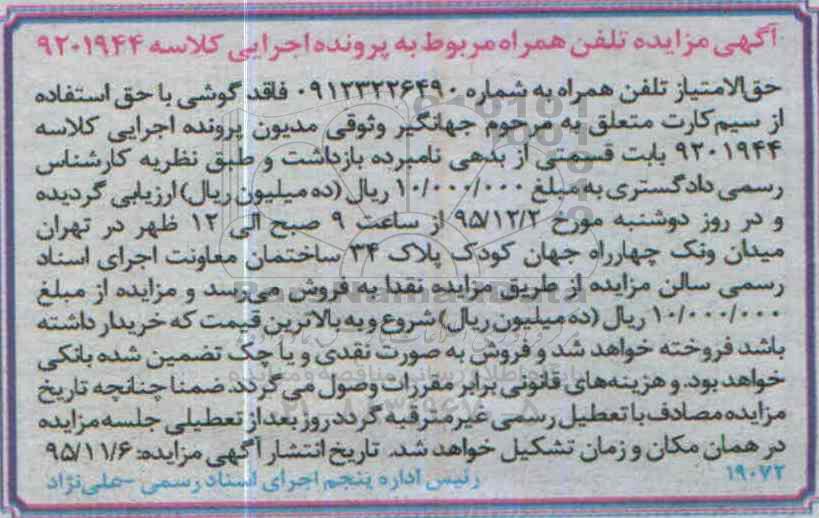 آگهی مزایده تلفن همراه مربوط به پرونده اجرایی کلاسه ۹۲۰۱۹۴۴
حق‌الامتیاز تلفن همراه به شماره ۰۹۱۲۳۲۲۶۴۹۰ فاقد گوشی با حق استفاده
از سیم‌کارت متعلق به مرحوم جهانگیر وثوقی مدیون پرونده اجرایی کلاسه
۹۲۰۱۹۴۴ بابت قسمتی از بدهی نامبرده بازداشت و طبق نظریه کارشناس
رسمی دادگستری به مبلغ ۱۰/۰۰۰/۰۰۰ ریال (ده میلیون ریال) ارزیابی گردیده
و در روز دوشنبه مورخ ۹۵/۱۲/۲ از ساعت ۹ صبح الی ۱۲ ظهر در تهران
میدان ونک چهارراه جهان کودک پلاک ۳۴ ساختمان معاونت اجرای اسناد
رسمی سالن مزایده از طریق مزایده نقدا به فروش می‌رسد و مزایده از مبلغ
۱۰/۰۰۰/۰۰۰ ریال (ده میلیون ریال) شروع و به بالاترین قیمت که خریدار داشته
باشد فروخته خواهد شد و فروش به صورت نقدی و یا چک تضمین شده بانکی
خواهد بود. و هزینه‌های قانونی برابر مقررات وصول می گردد. ضمنا چنانچه تاریخ
مزایده مصادف با تعطیل رسمی غیرمترقبه گردد روز بعد از تعطیلی جلسه مزایده
در همان مکان و زمان تشکیل خواهد شد. تاریخ انتشار آگهی مزایده: ۹۵/۱۱/۶
۱۹۰۷۲ رئیس اداره پنجم اجرای اسناد رسمی - علی‌نژاد